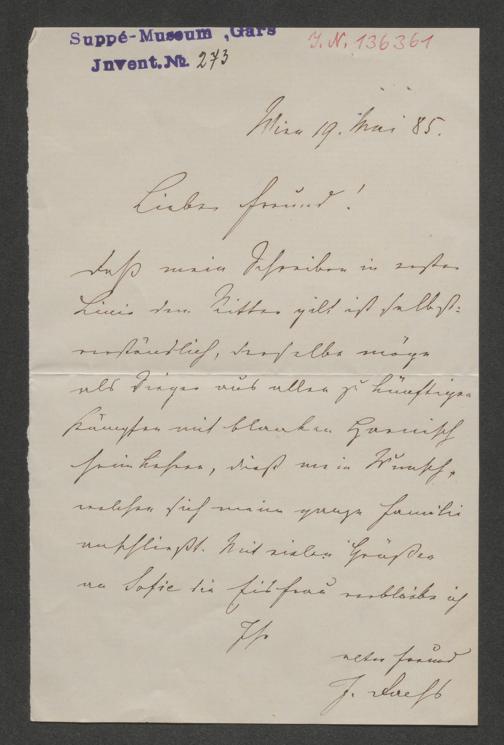 Suppé-Museum, Gars
Invent. No. 273
I. N. 136361
Wien 19. Mai 85.
Lieber Freund!
daß mein Schreiben in erster
Linie dem Ritter gilt ist selbst=
verständlich, derselbe möge
als Sieger aus allen zu künftigen
Kämpfen mit blanken Harnisch
heimkehren, dieß mein Wunsch,
welchen sich meine ganze Familie
anschließt. Mit vielen Grüßen
an Sofie die verbleibe ich
Ihr
alter Freund
J.